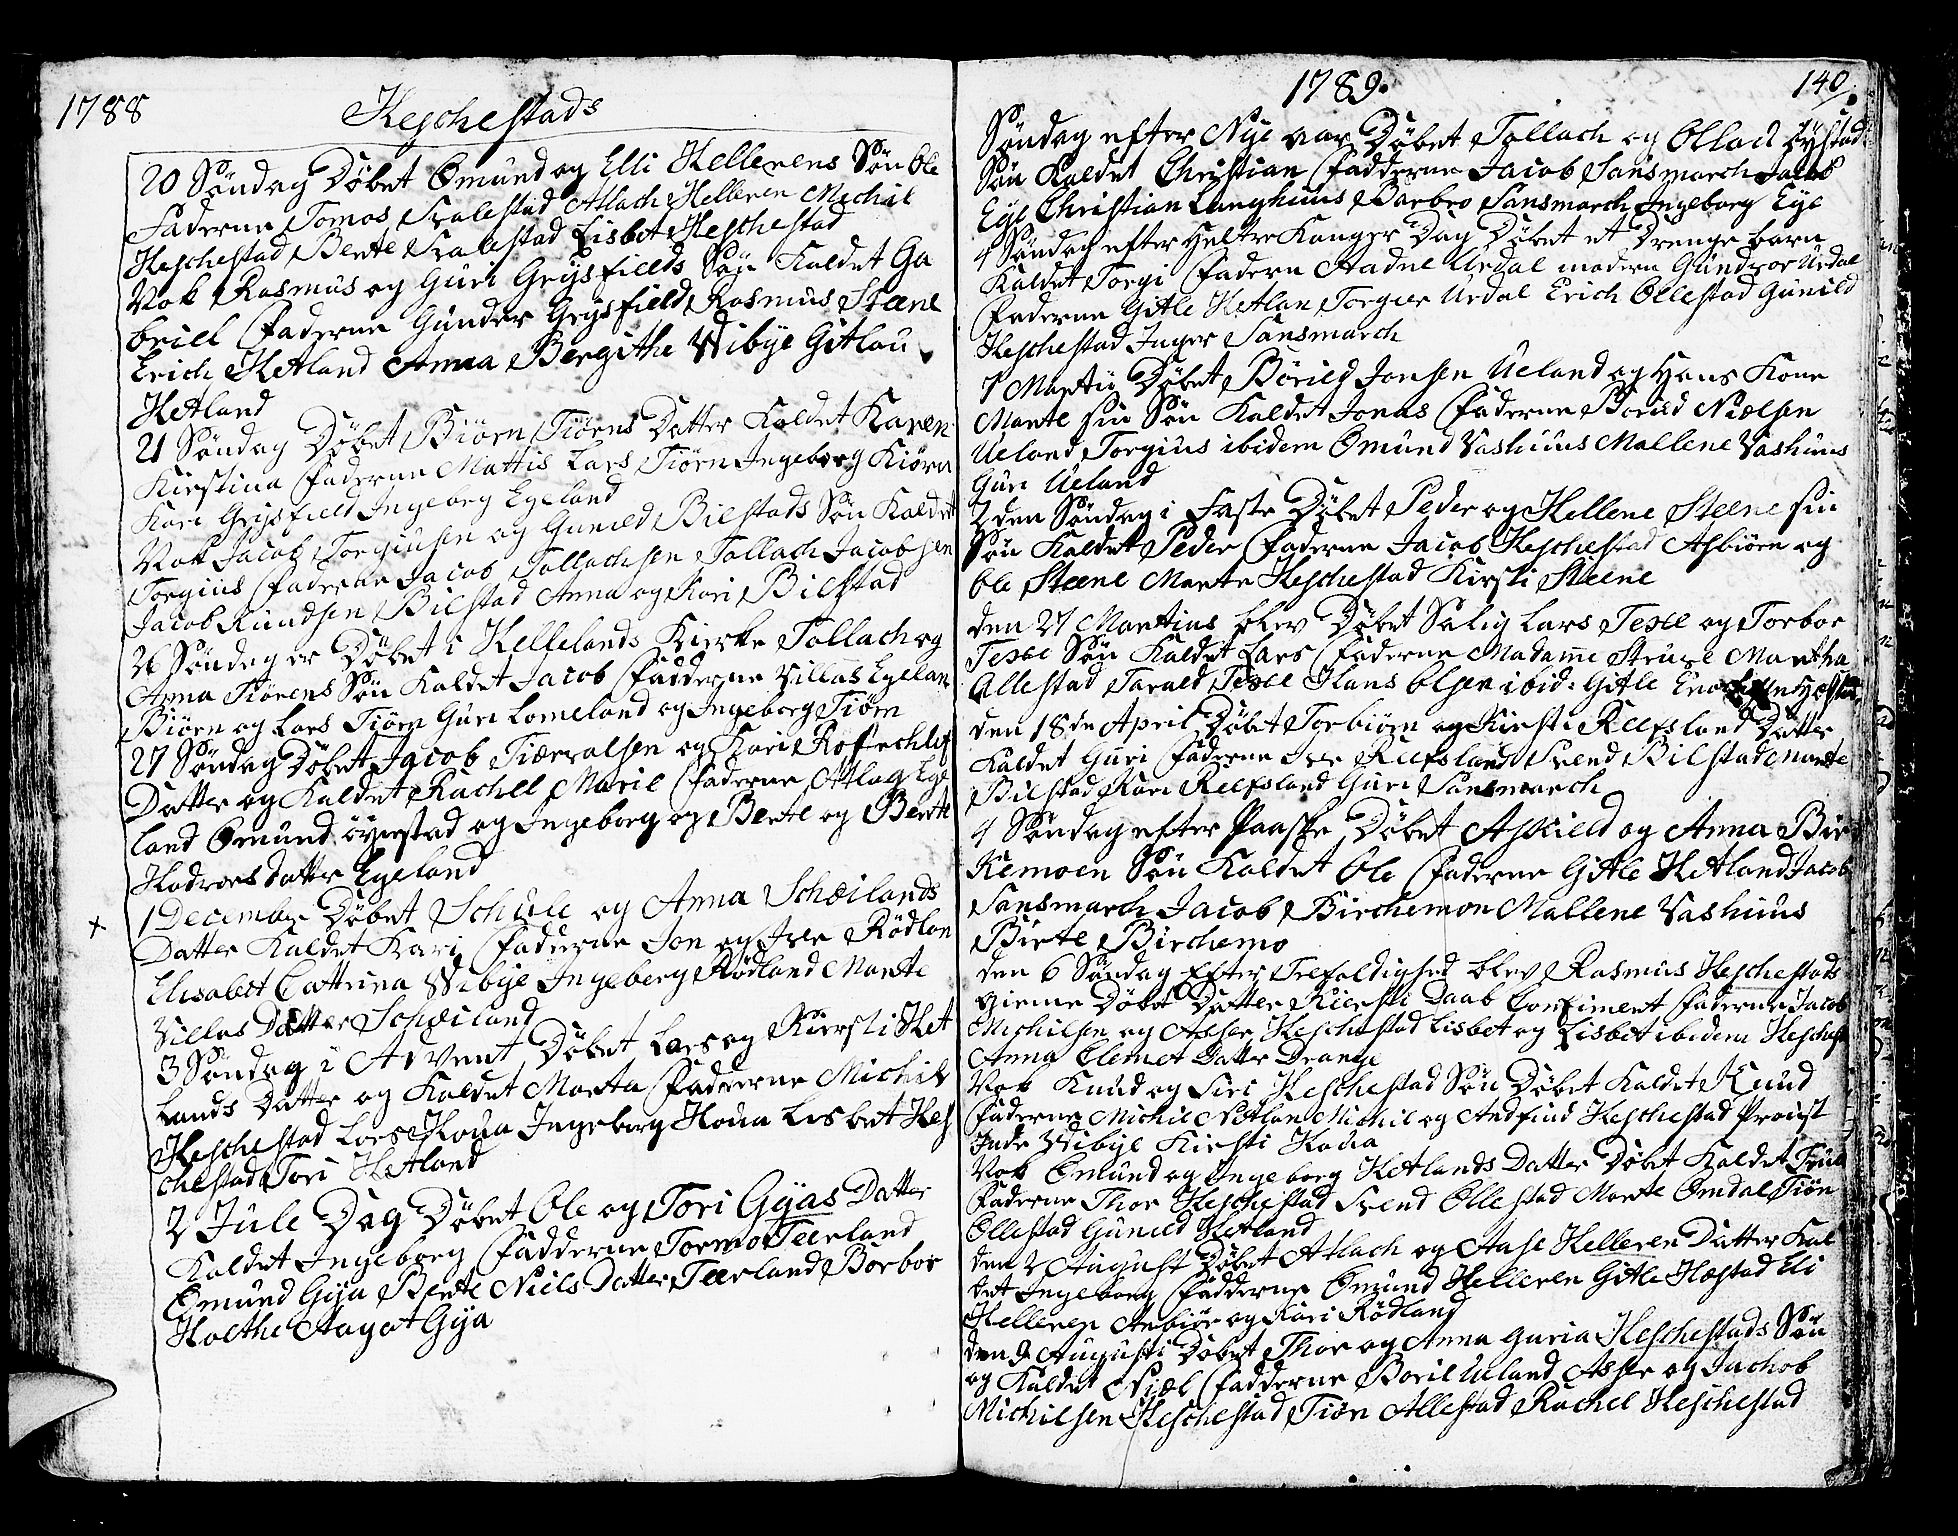 1788 Heschestads
20 Søndag Døbet Omund og Elli Hellerens Søn Ole
Faderne Tomas Svalestad Atlach Helleren Michil
Heschestad Bente Svalestad Lisbet Heschestad
Nok Rasmus og Guri Grysfields Søn Kaldet Ga
briel Faderne Gunder Grysfield Rasmus Steene
Erich Hetland Anna Bergithe Wibye Gitlou
Hetland
21 Søndag Døbet Biørn Tiørns Datter Kaldet Karen
Kirstina Faderne Mattis Lars Tiørn Ingeborg Kiørn
Kari Grysfield Ingeborg Egeland
Nok Jacob Torgiusen og Gunild Bilstads Søn Kaldet
Torgius Faderne Jacob Tollachsen Tollach Jacobsen
Jacob Knudsen Bilstad Anna og Kari Bilstad
26 Søndag er Døbet i Hellelands Kierke Tollach og
Anna Tiørens Søn Kaldet Jacob Fadderne Villas Egelan
Biørn og Lars Tiørn Guri Lomeland og Ingeborg Tiørn
27 Søndag Døbet Jacob og Kari
Datter og Kaldet Rachel Marie Faderne Atlag Ege
land Omund öyestad og Ingeborg og Berte og Berte
Hadvors datter Egeland
1 December Døbet og Anna Schæilands
Datter Kaldet Kari Faderne Jon og Iver Rödlan
Elisabet Cattrina Wibye Ingeberg Rödland Marte
Villas Datter Schæiland
3 Søndag i Advent Døbet Lars og Kiersti Het
lands Datter og Kaldet Marta Faderne Michil
Heschestad Lars Houa Ingeborg Houa Lisbet Hes
chestad Tori Hetland
2 Jule Dag Døbet Ole og Tori Gyas Datter
Kaldet Ingeborg Fadderne Tormo Teerland
Omund Gya Bente Niels Datter Teerland Borbor
Holthe Aagot Gya
1789. 140.
Søndag efter Nye aar Døbet Tollach og Öystad
Søn Kaldet Christian Fadderne Jacob Sansmarch Jacob
Eye Christian Langhuus Barbro Sansmarch Ingeborg Eye
4 Søndag efter Heltre Konger Dag Døbet et Drenge barn
Kaldet Torgi Fadern Aadne Urdal modern Gundvor Urdal
Faderne Gitle Hetlan Torger Urdal Erich Ollestad Gunild
Heschestad Inger Sansmarch
7 Martii Døbet Börild Jonsen Ueland og Hans Kone
Marte sin Søn Kaldet Jonas Faderne Borild Nielsen
Ueland Torgius ibidem Omund Vashuus Mallene Vashuus
Guri Ueland
2den Søndag i Faste Døbet Peder og Hellene Steene sin
Søn Kaldet Peder Faderne Jacob Heschestad Asbiørn og
Ole Steene Marte Heschestad Kirsti Steene
den 27 Martius blev Døbet Salig Lars Texe og Torbor
Texe Søn Kaldet Lars Faderne Madame Martha
Allestad Tarald Texe Hans Olsen ibid: Gitle
den 18de April Døbet Torbiørn og Kirsti Reefsland Datter
Kaldet Guri Faderne Iver Reefsland Svend Bilstad Marte
Bilstad Kari Reefsland Guri Sansmarch
4 Søndag efter Paaske Døbet Askield og Anna Bir
Kemoen Søn Kaldet Ole Faderne Gitle Hetland Jacob
Sansmarch Jacob Birchemon Mallene Vashuus
Birte Birchemo
den 6 Søndag Efter Trefoldighed blev Rasmus Heschestads
hieme Døbte Datter Kiersti Daab Confiment Faderne Jacob
Michilsen og Asser Heschestad Lisbet og Lisbet ibidem Hesche
Anna Clemet Datter Drange
Nok Knud og Siri Heschestad Søn Døbet Kaldet Knud
Faderne Michil Nætlan Michil og Andfind Heschestad Provist
Inde Wibye Kirsti Houa
Nok Omund og Ingeborg Hetlands Datter Døbt Kaldet
Faderne Thor Heschestad Svend Ollestad Marte Omdal Tiøn
Ollestad Gunild Hetland
den 2 August Døbet Atlach og Aase Helleren Datter Kal
det Ingeborg Fadderne Omund Helleren Gitle Hæstad Eli
Helleren Anbiör og Kari Rödland
den 9 Augusti Døbet Thor og Anna Guria Heschestads Søn
og Kaldet Niæl Fadderne Boril Ueland Asser og Jachob
Michilsen Heschestad Tiön Allestad Rachel Heschestad